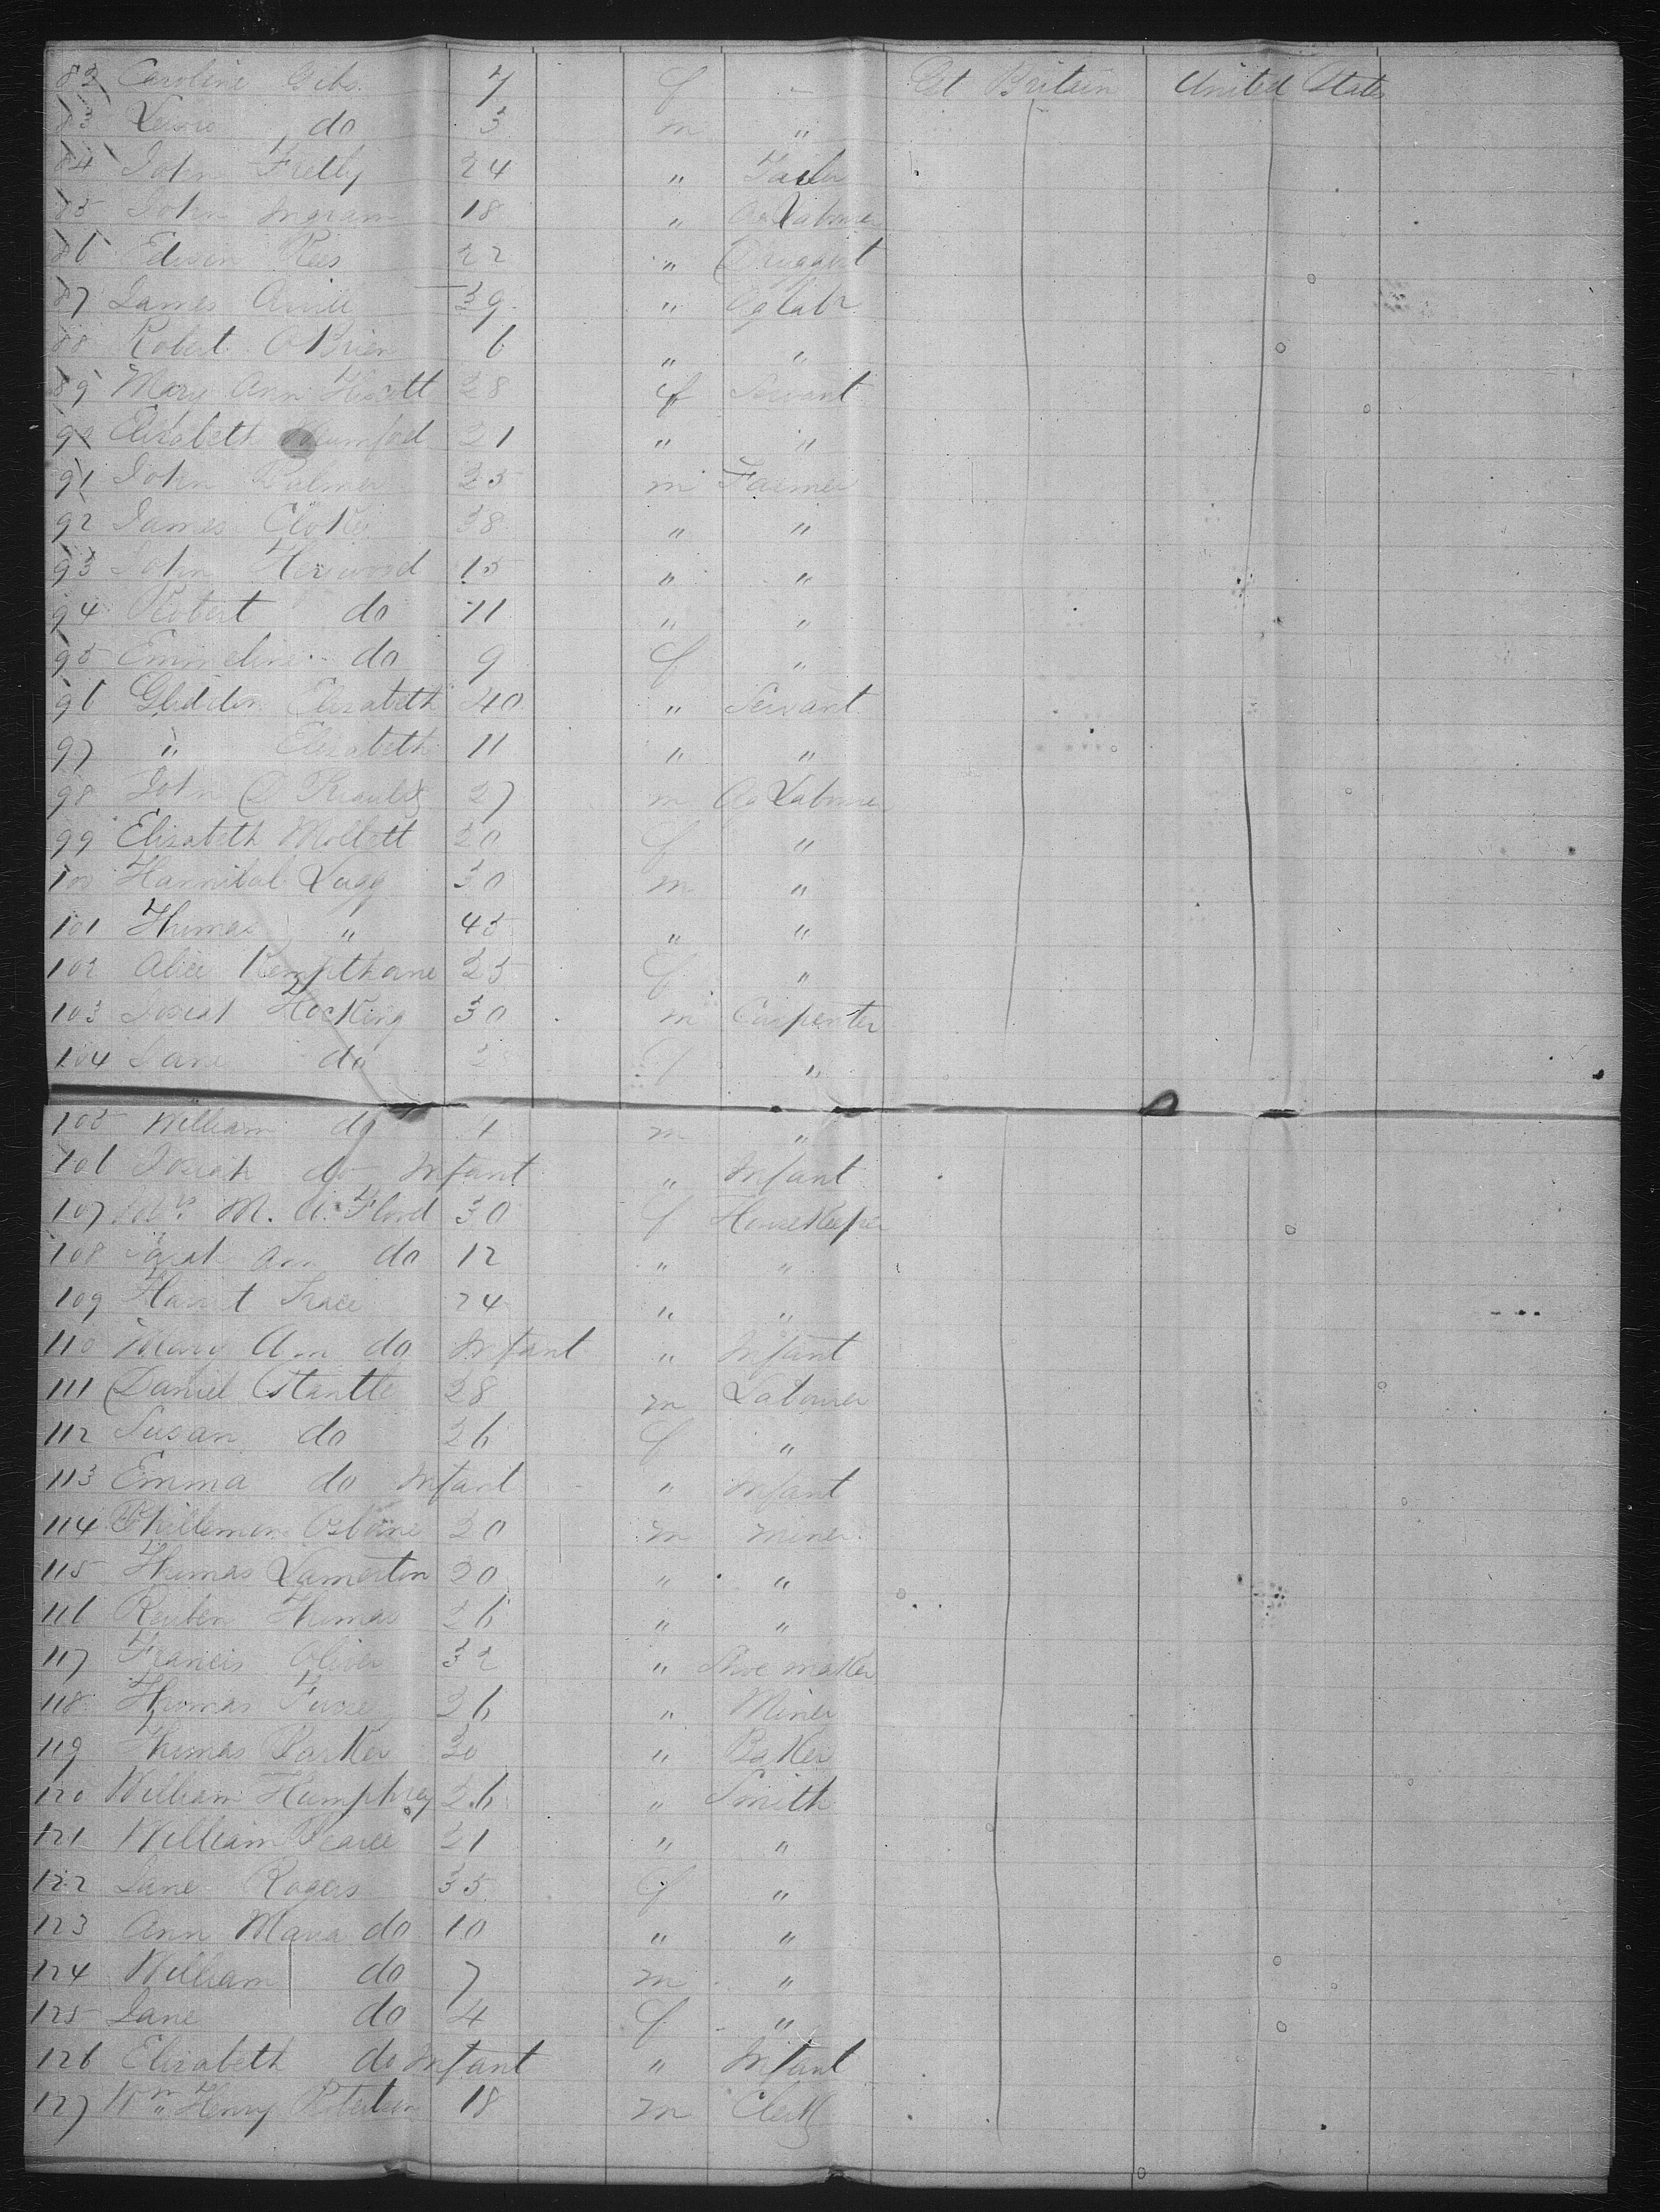 82 Caroline Gibs. 7 f " Gt Britain United States
83 Lewis do 3 m "
84 John 24 "
85 John Ingram 18 " Ag Labourer
86 Edwin Rees 22 " Druggist
87 James 39 " Ag Labr
88 Robert O Brien 6 " "
89 Mary Ann 28 f Servant
90 Elizabeth Mumford 21 " "
91 John Palmer 25 m Farmer
92 James 38 " "
93 John Heywood 15 " "
94 Robert do 11 " "
95 Emmeline do 9 f "
96 Elizabeth 40 " Servant
97 " Elizabeth 11 " "
98 John D 27 m Ag Labourer
99 Elizabeth Mollett 20 f "
100 Hannibal Lugg 30 m "
101 Thomas " 45 " "
102 Alice Kempthorne 25 f "
103 Josiah Hocking 30 m Carpenter
104 Jane do 2 f "
105 William do 1 m "
106 Josiah do Infant " Infant
107 Mrs M. A. Flood 30 f HouseKeeper
108 Sarah Ann do 12 " "
109 Harriet 24 " "
110 Mary Ann do Infant " Infant
111 Daniel 28 m Labourer
112 Susan do 26 f "
113 Emma do Infant " Infant
114 Phillemon Osborne 20 m miner
115 Thomas Lamerton 20 " "
116 Reuben Thomas 26 " "
117 Francis Oliver 32 " Shoe maker
118 Thomas 26 " Miner
119 Thomas Parker 30 " Baker
120 William Humphrey 26 " Smith
121 William Pearce 21 " "
122 Jane Rogers 35 f "
123 Ann Maria do 10 " "
124 William do 7 m "
125 Jane do 4 f "
126 Elizabeth do Infant " Infant
127 Wm Henry 18 m Clerk